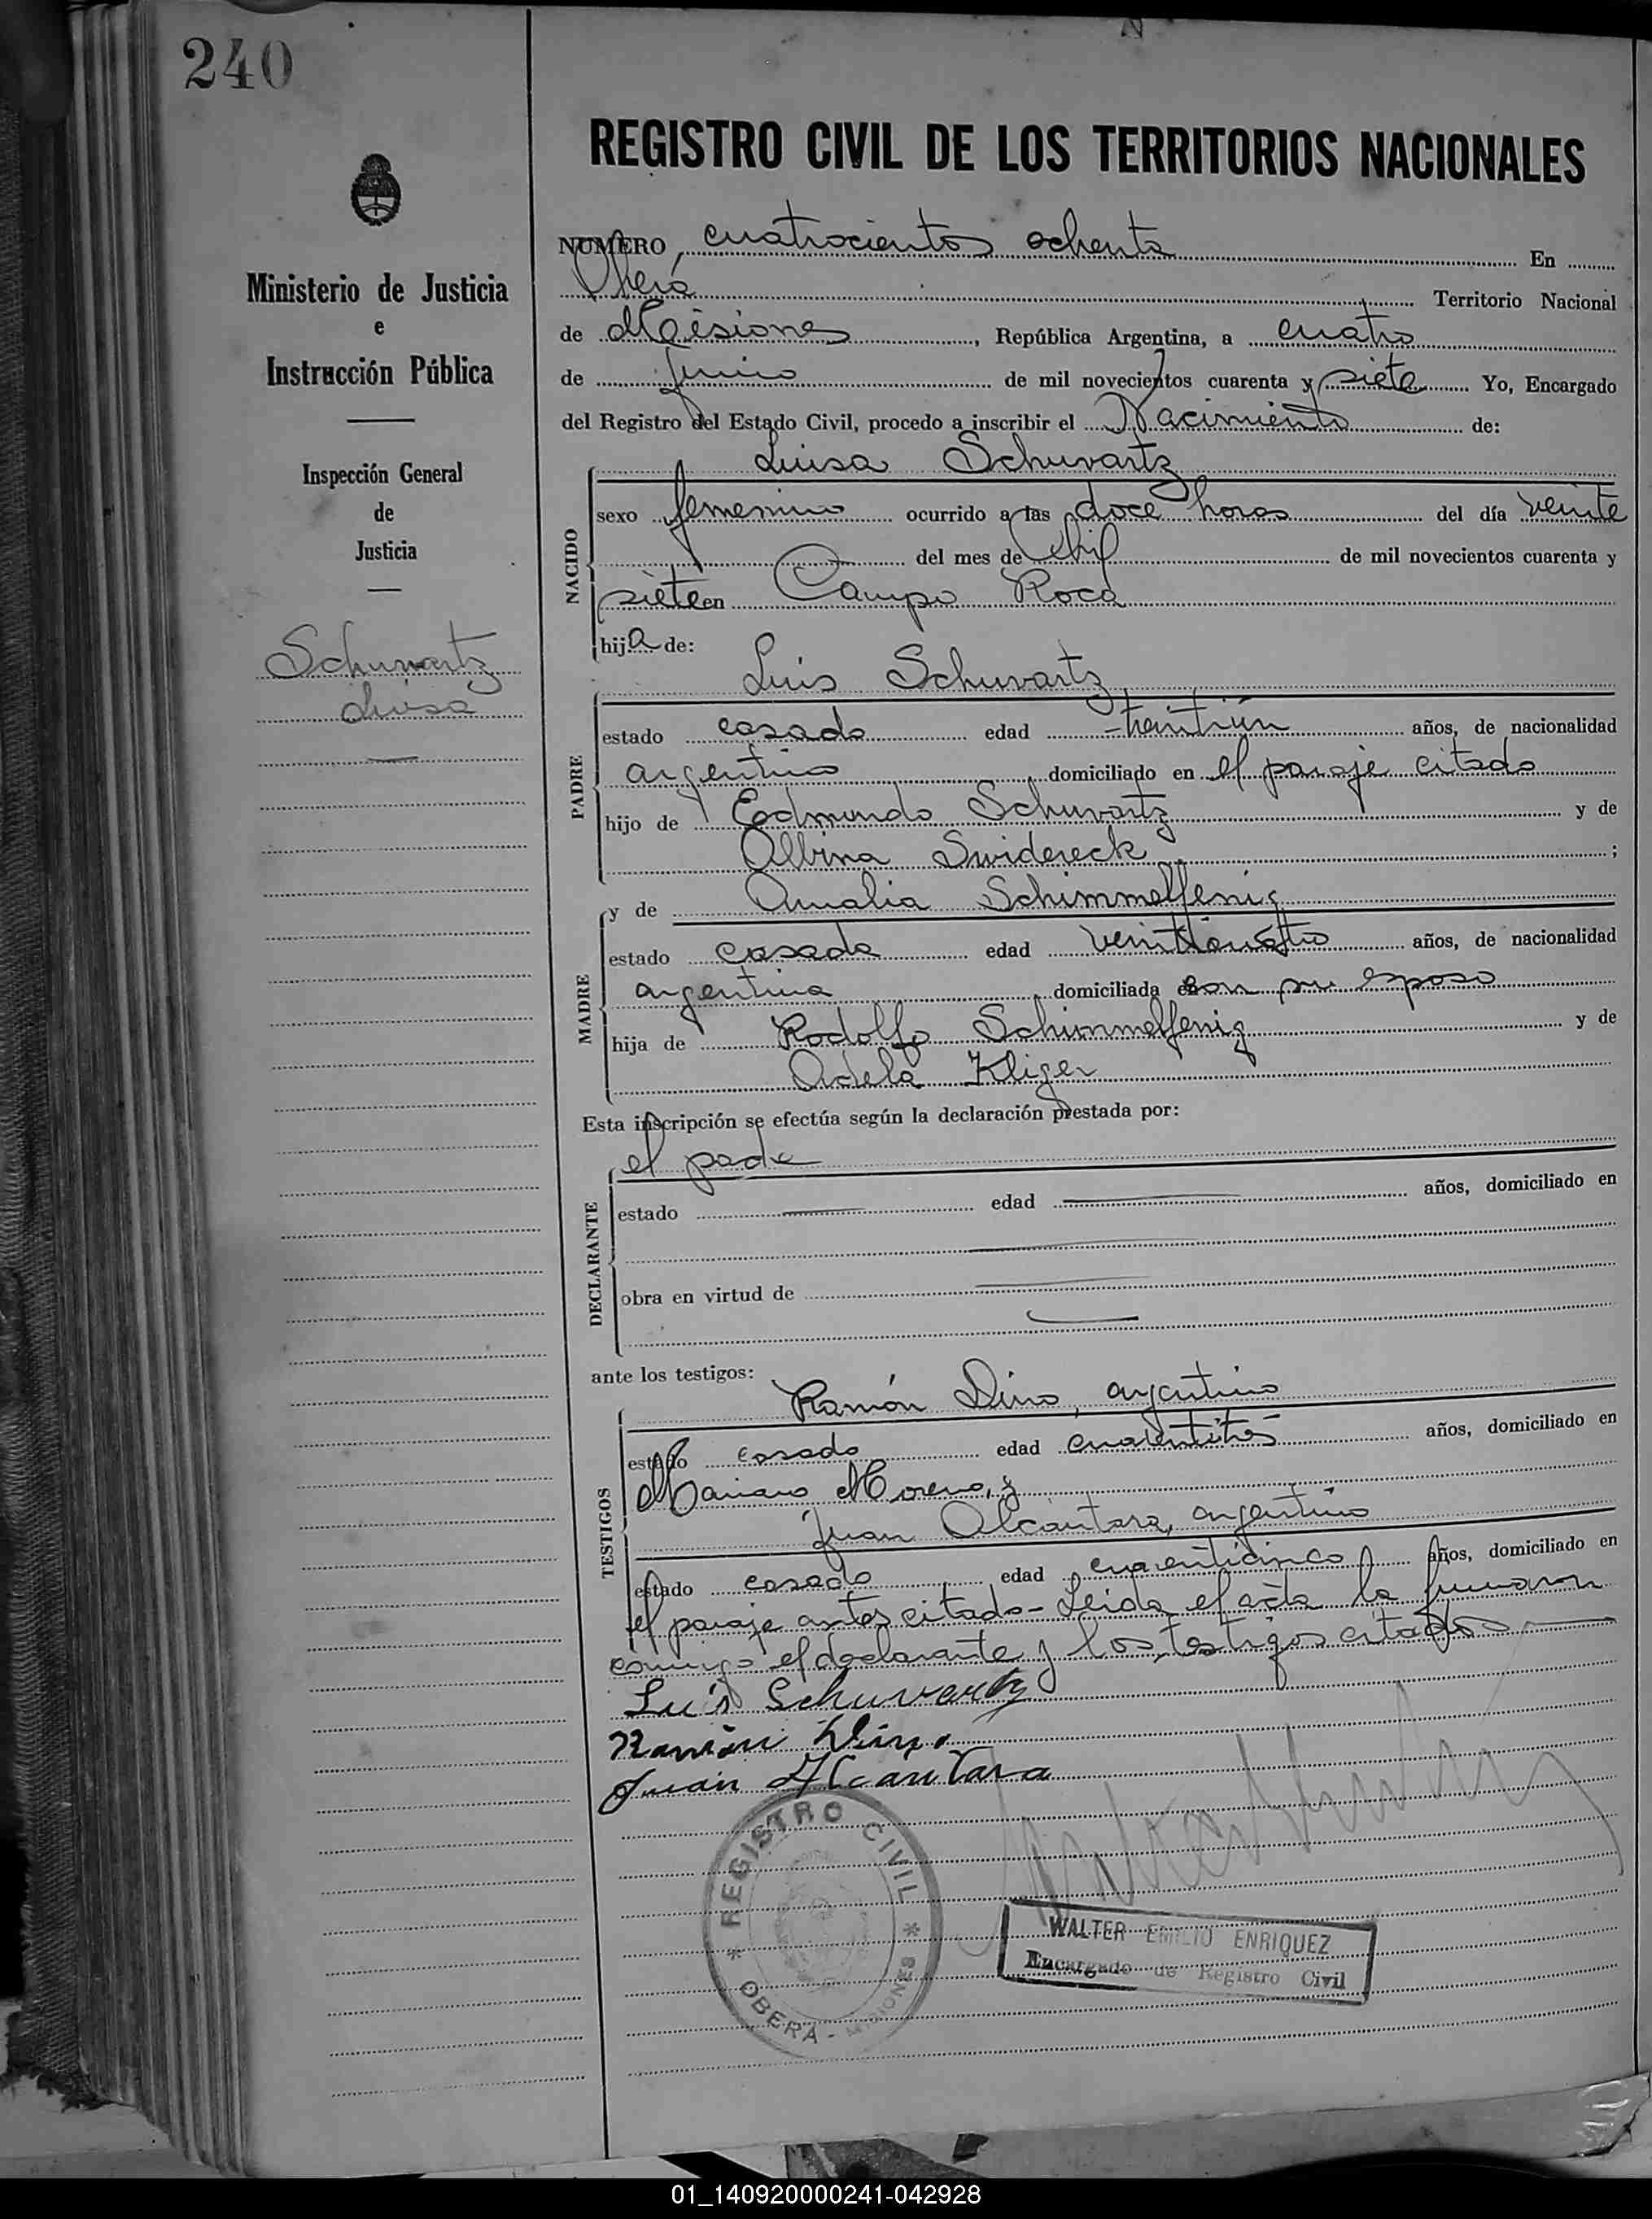 240
REGISTRO CIVIL DE LOS TERRITORIOS NACIONALES
Ministerio de Justicia
e
Instrucción Pública
Inspección General
de
Justicia
Schuvartz
Luisa
NUMERO cuatrocientos ochenta En
Oberá Territorio Nacional
de Misiones, República Argentina, a cuatro
de junio de mil novecientos cuarenta y siete Yo, Encargado
del Registro del Estado Civil, procedo a inscribir el Nacimiento de:
Luisa Schuvartz
NACIDO
sexo femenino ocurrido a las doce horas del día veinte
del mes de abril de mil novecientos cuarenta y
siete en Campo Roca
hija de:
Luis Schuvartz
PADRE
estado casado edad treintiún años, de nacionalidad
argentino domiciliado en el paraje citado
hijo de Edmundo Schuvartz y de
Albina Swidereck ;
y de Amalia Schimmelfenig
MADRE
estado casada edad veinticuatro años, de nacionalidad
argentina domiciliada con su esposo
hija de Rodolfo Schimmelfenig y de
Adela Kliger
Esta inscripción se efectúa según la declaración prestada por:
el padre
DECLARANTE
estado edad años, domiciliado en
obra en virtud de
ante los testigos:
Ramón Dino, argentino
TESTIGOS
estado casado edad cuarentitrés años, domiciliado en
Mariano Moreno, y
Juan Alcántara, argentino
estado casado edad cuarenticinco años, domiciliado en
el paraje antes citado - Leida el acta la firmaron
conmigo el declarante y los testigos citados
Luis Schuvartz
Ramón Dino.
Juan Alcantara
REGISTRO CIVIL
OBERÁ - MISIONES
WALTER EMILIO ENRIQUEZ
Encargado de Registro Civil
01_140920000241-042928